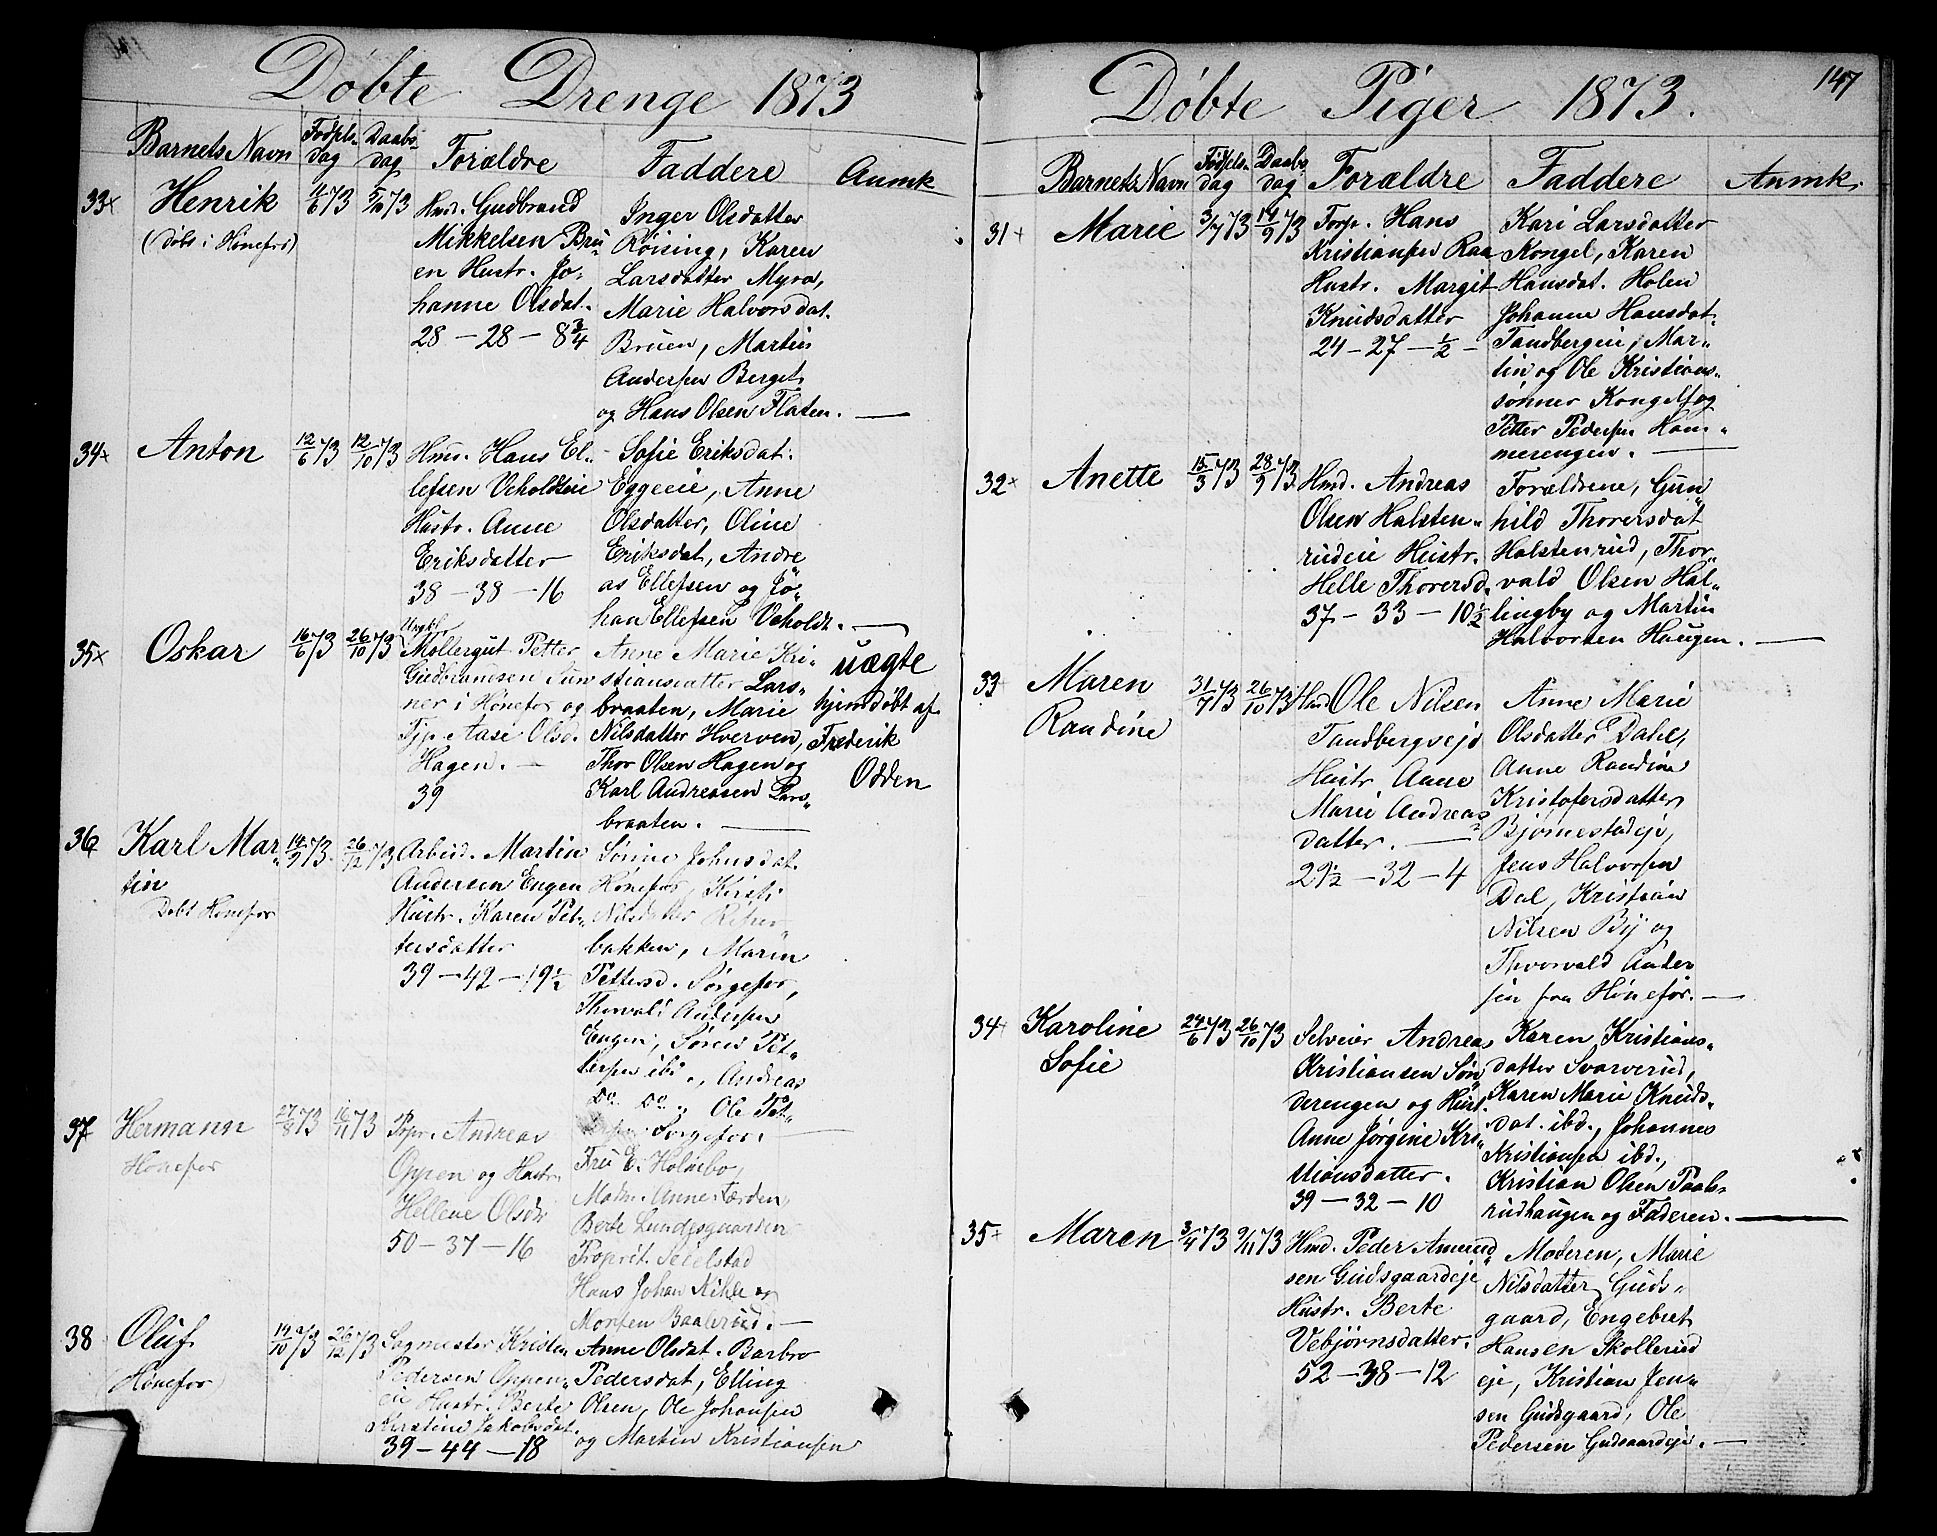 Döbte Drenge 1873
Barnets Navn Födsels dag Daabs dag Forældre Faddere Anmk
33 Henrik 11/6 73 5/10 73
(döbt i Hönefos)
Hmd. Gudbrand
Mikkelsen Bru-
en Hustr. Jo-
hanne Olsdat.
28 - 28 - 8 3/4
Inger Olsdatter
Røising, Karen
Larsdatter Myra,
Marie Halvorsdat.
Bruen, Martin
Andersen Berget
og Hans Olsen Flaten.
34 Anton 12/6 73 12/10 73
Hmd. Hans El-
lefsen Veholdteie
Hustr. Anne
Eriksdatter
38 - 38 - 16
Sofie Eriksdat.
Eggeeie, Anne
Olsdatter, Oline
Eriksdat, Andre
as Ellefsen og Jo-
han Ellefsen Veholdt.
35 Oskar 16/6 73 26/10 73
Ungkl.
Møllergut Petter
Gudbrandsen
ner i Hönefos og
Tjp. Aase Olsd.
Hagen.
39
Anne Marie Kri-
stiansdatter Lars-
braaten, Marie
Nilsdatter Hverven,
Thor Olsen Hagen og
Karl Andreasen Lars-
braaten.
uægte
hjemdøbt af
Frederik
Odden
36 Karl Mar- 19/9 73 26/12 73
tin
Döbt Hönefos
Arbeid. Martin
Andersen Engen
Hustr. Karen Pet-
tersdatter
39 - 42 - 19 1/2
Sørine Johnsdat.
Hönefos, Kirsti
Nilsdatter
bakken, Maren
Pettersd. Sørgefos,
Thorvald Andersen
Engen, Søren Pet-
tersen ibd., Andreas
Do. Do., Ole Pet-
tersen Sørgefos.
37 Hermann 27/8 73 16/11 73
Hönefos
Andreas
Oppen og Hustr.
Hellene Olsdr
50 - 37 - 16
Fru E. Holmbo,
Madm. Anne Færden
Berte Lundesgaarden
Propriet. Seielstad
Hans Johan Kihle og
Morten Baalerud.
38 Oluf 19/10 73 26/12 73
(Hönefos)
Sagmester Kristen
Pedersen Oppen-
eie Hustr. Berte
Kirstine Jakobsdat.
39 - 44 - 18
Anne Olsdat. Barbro
Pedersdat, Elling
Olsen, Ole Johansen
og Martin Kristiansen
Döbte Piger 1873. 147
Barnets Navn Födsels dag Daabs dag Forældre Faddere Anmk.
31 Marie 3/7 73 14/9 73
Torp. Hans
Kristiansen Raa
Hustr. Margit
Knudsdatter
24 - 27 - 1/2 -
Kari Larsdatter
Kongel, Karen
Hansdat. Holen
Johanne Hansdat.
Tandbergeie, Mar-
tin og Ole Kristians-
sønner Kongelf og
Petter Pedersen Ham-
merengen.
32 Anette 15/3 73 28/9 73
Hmd. Andreas
Olsen Halsten-
rudeie Hustr.
Helle Thorersd.
37 - 33 - 10 1/2
Forældrene, Gun
hild Thorersdat
Halstenrud, Thor-
vald Olsen Hal-
lingby og Martin
Halvorsen Haugen.
33 Maren 31/7 73 26/10 73
Randine
Hmd Ole Nilsen
Tandbergseje
Hustr Anne
Marie Andreas
datter.
29 1/2 - 32 - 4
Anne Marie
Olsdatter Dahl,
Anne Randine
Kristofersdatter
Bjørnestadeje,
Jens Halvorsen
Dal, Kristian
Nilsen By og
Thorvald Ander
sen fra Hönefos.
34 Karoline 24/6 73 26/10 73
Sofie
Selveier Andreas
Kristiansen Søn
derengen og Hust.
Anne Jørgine Kri-
stiansdatter.
39 - 32 - 10
Karen Kristians-
datter Svarverud,
Karen Marie Knuds-
dat. ibd., Johannes
Kristiansen ibd.,
Kristian Olsen Paals-
rudhaugen og Faderen.
35 Maren 3/4 73 9/11 73
Hmd. Peder Amund
sen Gudsgaardeje
Hustr. Berte
Vebjørnsdatter.
52 - 38 - 12
Moderen, Marie
Nilsdatter Guds-
gaard, Engebret
Hansen Skollerud
eje, Kristian Jen-
sen Gudsgaard, Ole
Pedersen Gudsgaardeje.